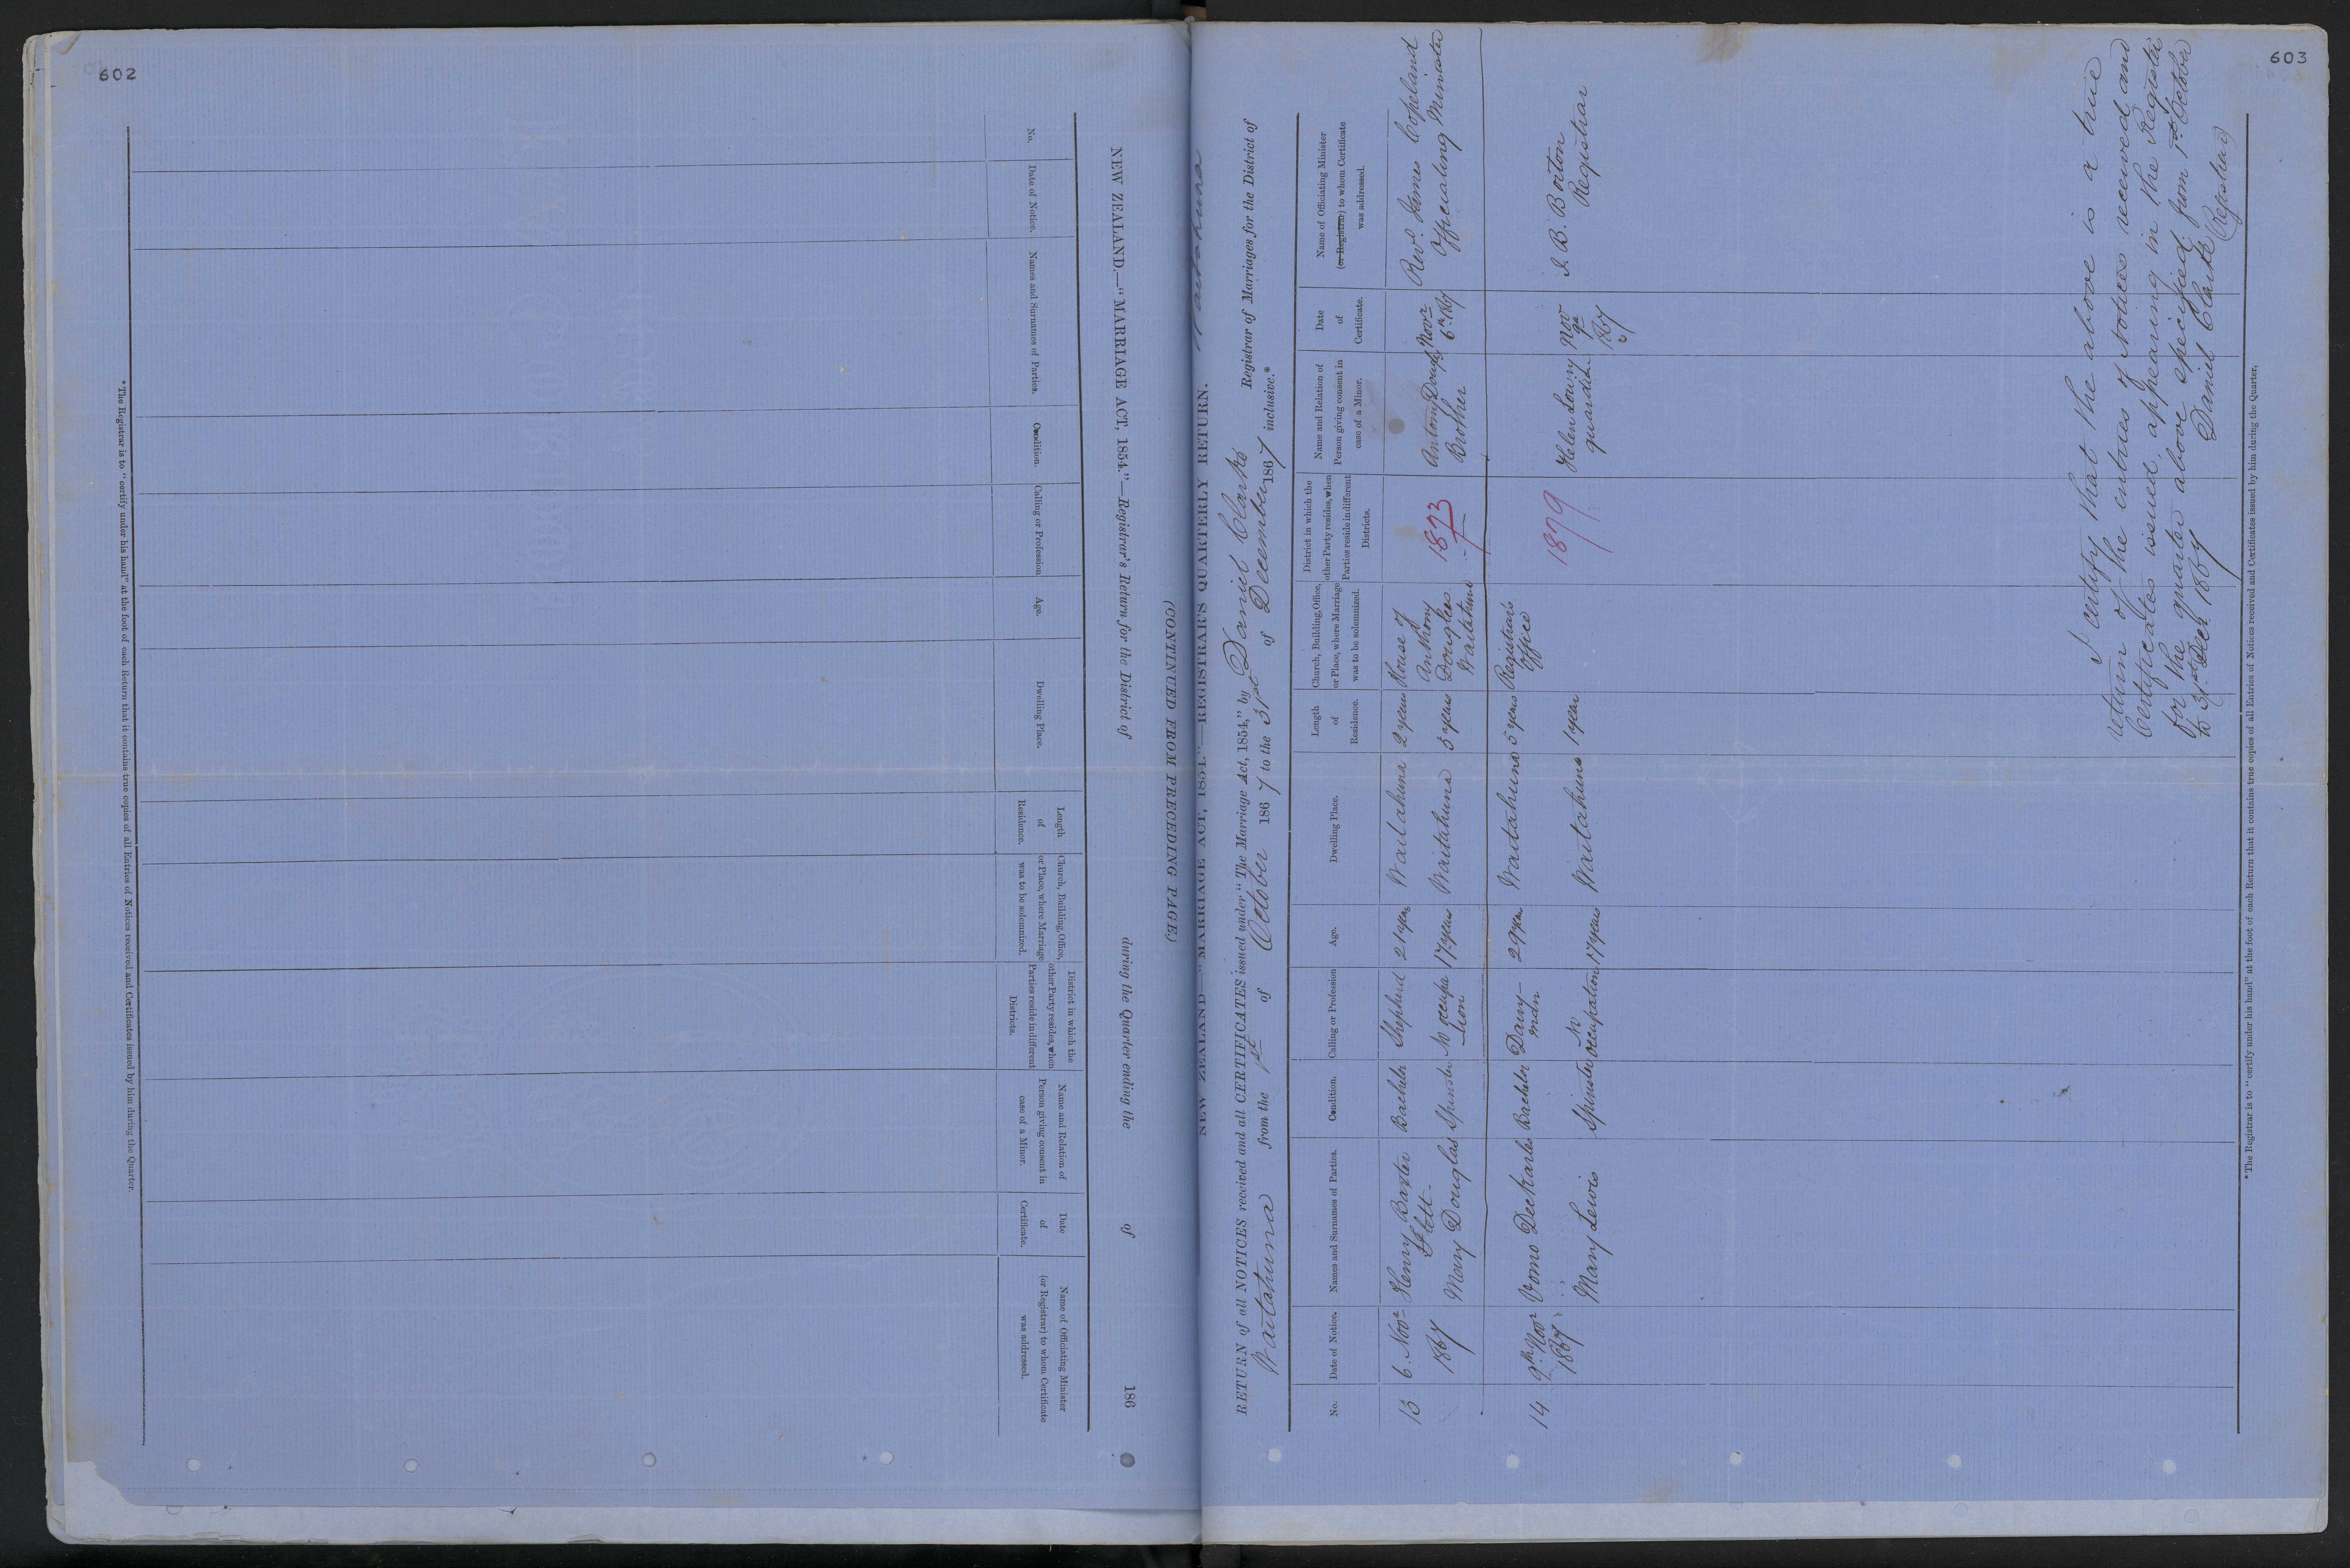 602
NEW ZEALAND.—"MARRIAGE ACT, 1854."—Registrar's Return for the District of during the Quarter ending the of 186
(CONTINUED FROM PRECEDING PAGE.)
No.
Date of Notice.
Names and Surnames of Parties.
Condition.
Calling or Profession
Age.
Dwelling Place.
Length
of
Residence.
Church, Building, Office,
or Place, where Marriage
was to be solemnized.
District in which the
other Party resides, when
Parties reside in different
Districts.
Name and Relation of
Person giving consent in
case of a Minor.
Date
of
Certificate.
Name of Officiating Minister
(or Registrar) to whom Certificate
was addressed.
*The Registrar is to "certify under his hand" at the foot of each Return that it contains true copies of all Entries of Notices received and Certificates issued by him during the Quarter.
603
NEW ZEALAND—"MARRIAGE ACT, 1854."—REGISTRAR'S QUARTERLY RETURN. Waitahuna
RETURN of all NOTICES received and all CERTIFICATES issued under "The Marriage Act, 1854," by Daniel Clarke Registrar of Marriages for the District of
Waitahuna from the 1st of October 1867 to the 31st of December 1867 inclusive.*
No.
Date of Notice.
Names and Surnames of Parties.
Condition.
Calling or Profession
Age.
Dwelling Place.
Length
of
Residence.
Church, Building, Office,
or Place, where Marriage
was to be solemnized.
District in which the
other Party resides, when
Parties reside in different
Districts.
Name and Relation of
Person giving consent in
case of a Minor.
Date
of
Certificate.
Name of Officiating Minister
(or Registrar) to whom Certificate
was addressed.
13
6. Novr
1867
Henry Baxter
Flett
Mary Douglas
Bachelor
Spinster
Shepherd
No occupa
tion
21 years
17 years
Waitahuna
Waitahuna
2 years
5 years
House of
Anthony
Douglas
Waitahuna
1873
Antony Dougls
Brother
Novr
6th 1867
Revd. James Copeland
Officiating Minister
14
9th Novr
1867
Vomo Deckarles
Mary Lewis
Bachelor
Spinster
Dairy-
man
No
occupation
29 years
17 years
Waitahuna
Waitahuna
5 years
1 year
Registrar's
Office
1879
Helen Lowry
guardian
Nov
9th
1867
J. B. Borton
Registrar
I certify that the above is a true
return of the entries of Notices received and
Certificates issued, appearing in the Register
for the quarter above specified from 1st October
to 31st Decr 1867
Daniel Clarke
(Registrar)
*The Registrar is to "certify under his hand" at the foot of each Return that it contains true copies of all Entries of Notices received and Certificates issued by him during the Quarter.